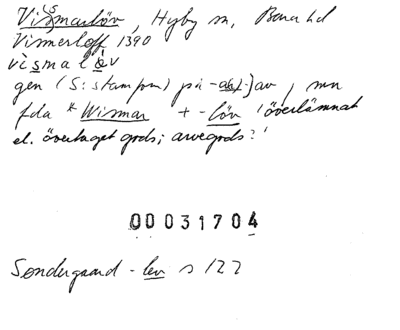 Vismarlöv, Hyby sn, Bara hd
Vismerloff 1390
vismalöv
gen (S: stampen) på -a(r)-] av, mn
fda *Wismar + -löv 'överlämnat
el. övertaget gods; arvegods?'
00031704
Søndergaard -lev s 122